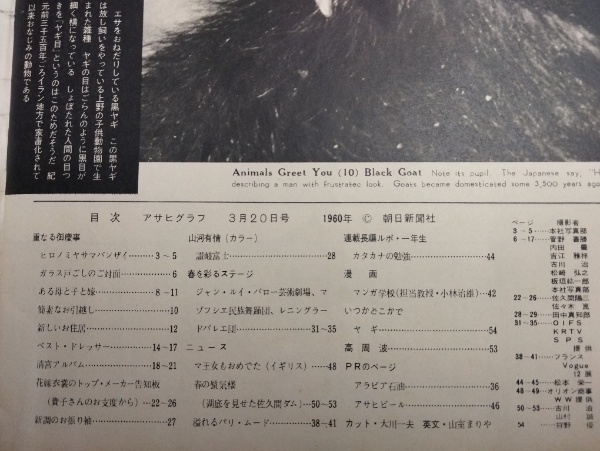 エサをおねだりしている黒ヤギ　この黒ヤギ
は放し飼いをやっている上野の子供動物園で生
まれた雑種　ヤギの目はごらんのように黒目が
細く横になっている　しょぼたれた人間の目つ
きを「ヤギ目」というのはこのためだそうだ　紀
元前三千五百年ごろイラン地方で家畜化されて
以来おなじみの動物である
Animals Greet You (10) Black Goat Note its pupil. The Japanese say, "H
describing a man with frustrated look. Goats became domesticated some 3,500 years ago
目次　アサヒグラフ　3月20日号　1960年 © 朝日新聞社
重なる御慶事
ヒロノミヤサマバンザイ 3～5
ガラス戸ごしのご対面 6
ある母と子と嫁 8～11
簡素なお引越し 10
新しいお住居 12
ベスト・ドレッサー 14～17
清宮アルバム 18～21
花嫁衣裳のトップ・メーカー告知板
(貴子さんのお支度から) 22～26
新調のお振り袖 27
山河有情 (カラー)
讃岐富士 28
春を彩るステージ
ジャン・ルイ・バロー芸術劇場、マ
ゾフシェ民族舞踊団、レニングラー
ドバレエ団 31～35
ニュース
マ王女もおめでた (イギリス) 48
春の蜃気楼
(湖底を見せた佐久間ダム) 50～53
溢れるパリ・ムード 38～41
連載長編ルポ・一年生
カタカナの勉強 44
漫画
マンガ学校 (担当教授・小林治雄) 42
いつかどこかで
ヤギ 54
高周波 53
PRのページ
アラビア石油 36
アサヒビール 46
カット・大川一夫　英文・山室まりや
ページ　撮影者
3－5 本社写真部
6－17 菅野喜勝
内田
吉江雅祥
吉川治
松崎弘之
板垣紘一郎
本社写真部
22－26 佐久間陽三
佐々木
28－29 田中真知郎
31－35 OIFS
KRTV
SPS
提供
38－41 フランス
Vogue
12展
44－45 松本栄一
48－49 オリオン商事
WW提供
50－53 吉川治
山村誠
54 狩野優